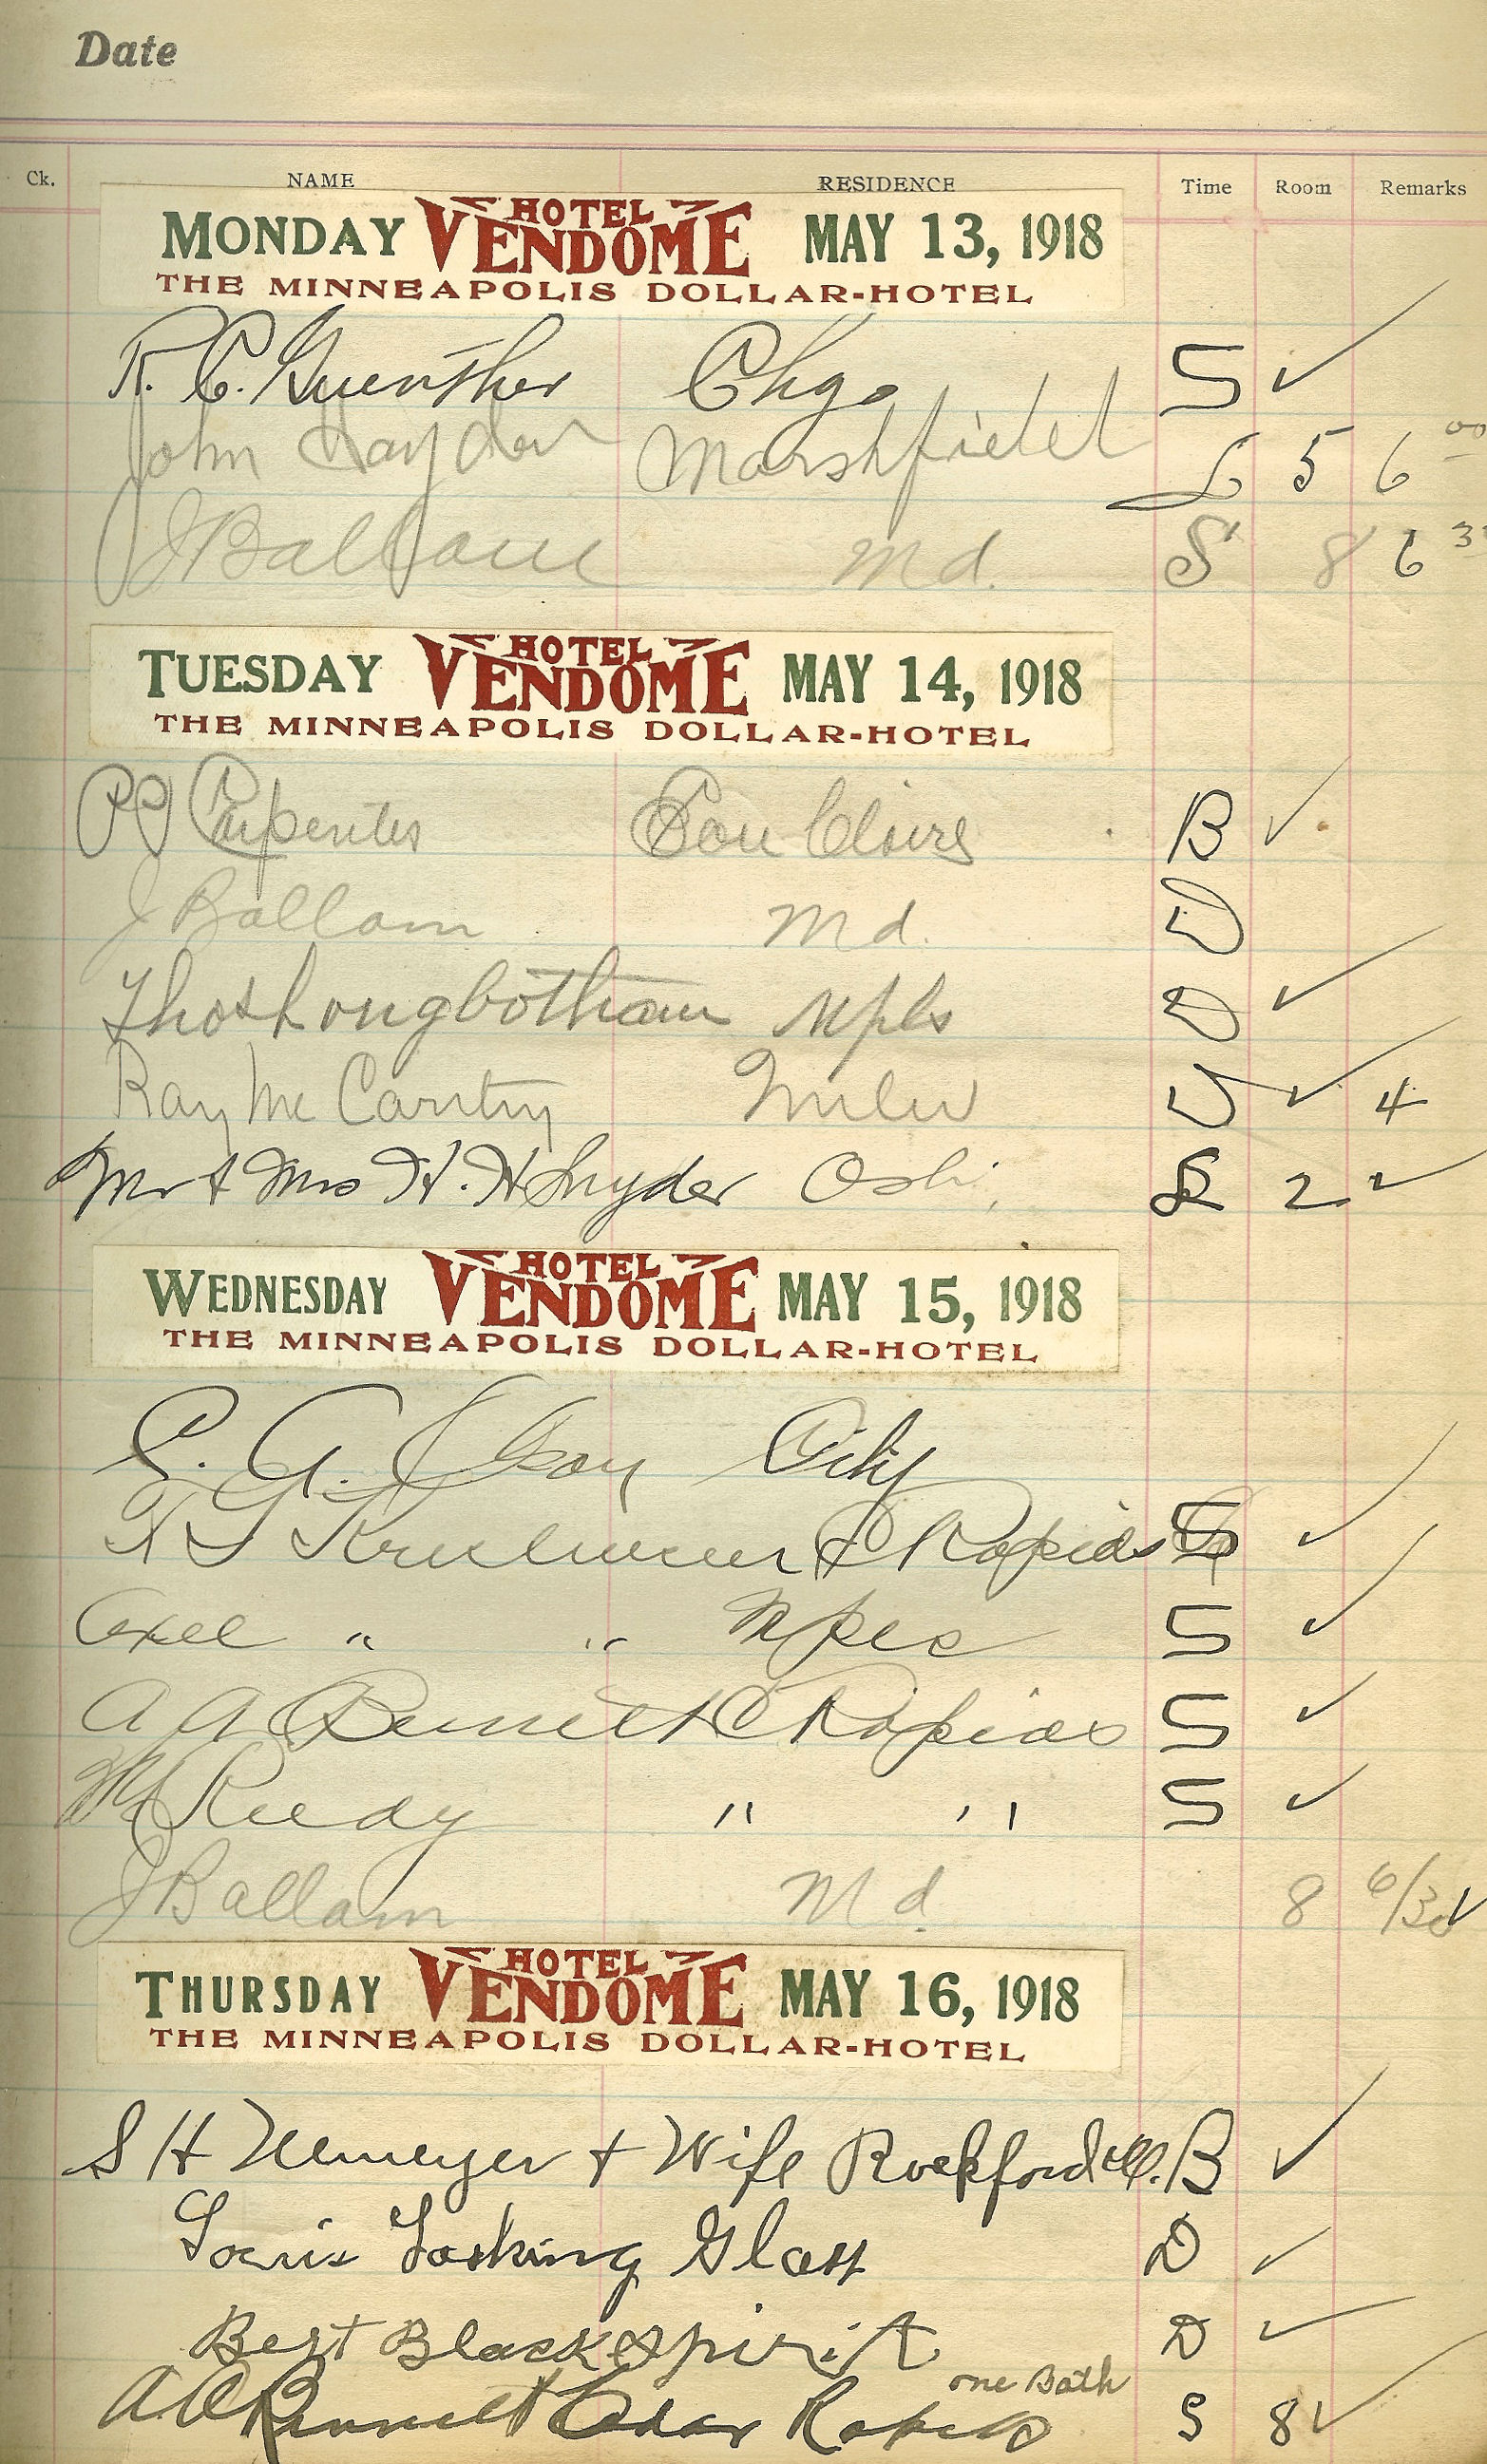 Date
Ck. NAME RESIDENCE Time Room Remarks
MONDAY HOTEL VENDOME MAY 13, 1918
THE MINNEAPOLIS DOLLAR-HOTEL
R. C. Guenther Chgo S ✓
John Hayden Marshfield L 5 6 00
J Ballam Md. S 8 6 3
TUESDAY HOTEL VENDOME MAY 14, 1918
THE MINNEAPOLIS DOLLAR-HOTEL
PJ Carpenter Eau Claire B ✓
J Ballam Md. D
Thos Longbotham Mpls D ✓
Ray McCarthy Milw D ✓ 4
Mr & Mrs H. H Snyder Osh S 2 ✓
WEDNESDAY HOTEL VENDOME MAY 15, 1918
THE MINNEAPOLIS DOLLAR-HOTEL
E. G. Olson City
C Rapids S ✓
Axel " " Mpls S ✓
A A Bennett C Rapids S ✓
Reedy " " S ✓
J Ballam Md 8 6/30 ✓
THURSDAY HOTEL VENDOME MAY 16, 1918
THE MINNEAPOLIS DOLLAR-HOTEL
S H Nemeyer + Wife Rockford Ill. B ✓
Louis Looking Glass D ✓
Bert Black Spirit D ✓
one Bath
A A Bennett Cedar Rapids S 8 ✓